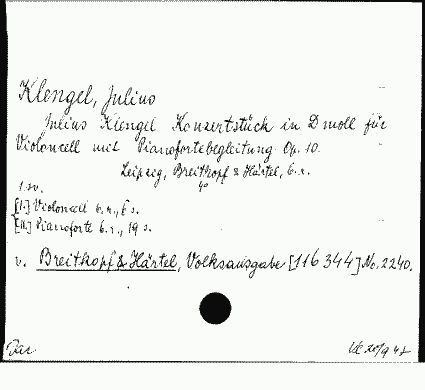 Klengel, Julius
Julius Klengel Konzertstück in D moll für
Violoncell mit Pianofortebegleitung. Op. 10.
Leipzig, Breitkopf & Härtel, b.r.
4°
1 sv.
[I.] Violoncell b.r., 6 s.
[II.] Pianoforte b.r., 19 s.
v. Breitkopf & Härtel, Volksausgabe [116 344] No. 2240.